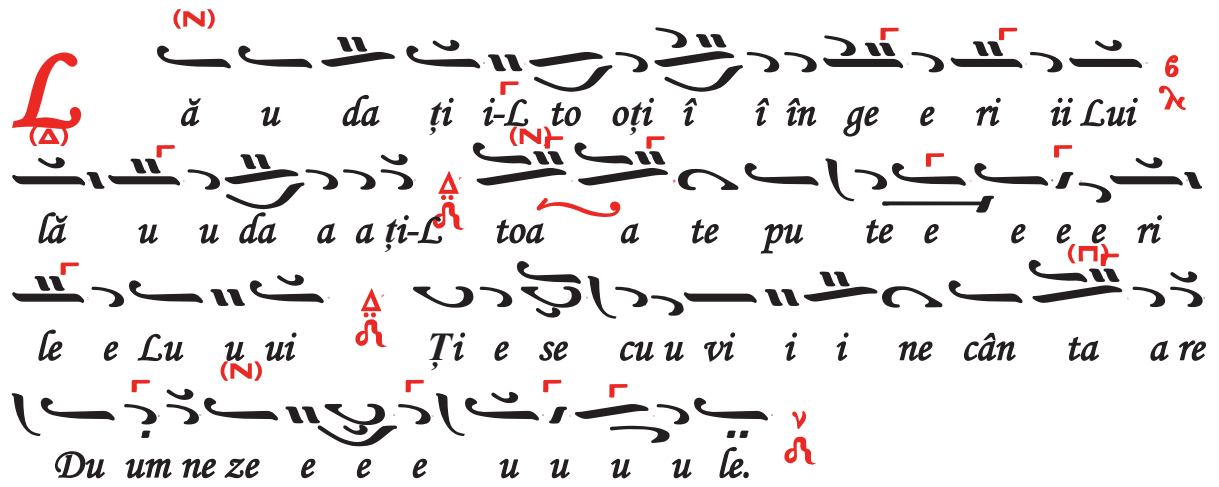 (N)
L ă u da ți i-L to oți î î în ge e ri ii Lui
(Δ) (N)
lă u u da a a ți-L toa a te pu te e e e e ri
(Π)
le e Lu u ui Ți e se cu u vi i i ne cân ta a re
(N)
Du um ne ze e e e u u u u le.